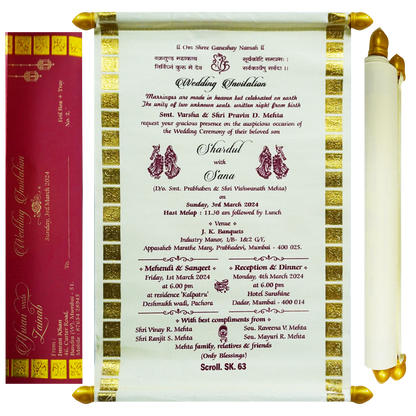 || Om Shree Ganeshay Namah ||
वक्रतुण्ड महाकाय
सूर्यकोटि समप्रभः ।
निर्विघ्नं कुरू मे देव
सर्वकार्येषु सर्वदा ।।
Wedding Invitation
Marriages are made in heaven but celebrated on earth
The unity of two unknown souls, written night from birth
Smt. Varsha & Shri Pravin D. Mehta
request your gracious presence on the auspicious occasion of
the Wedding Ceremony of their beloved son
Shardul
with
Sana
(D/o. Smt. Prabhaben & Shri Vishwanath Mehta)
on
Sunday, 3rd March 2024
Hast Melap : 11.30 am followed by Lunch
Venue
J. K. Banquets
Industry Manor, 1/B- 1&2 G/F,
Appasaheb Marathe Marg, Prabhadevi, Mumbai - 400 025.
Mehendi & Sangeet
Friday, 1st March 2024
at 6.00 pm
at residence 'Kalpatru'
Deshmukh wadi, Pachora
Reception & Dinner
Monday, 4th March 2024
at 6.00 pm
Hotel Sunshine
Dadar, Mumbai - 400 014
With best compliments from
Shri Vinay R. Mehta
Sou. Raveena V. Mehta
Shri Ranjit S. Mehta
Sou. Mayuri R. Mehta
Mehta family, relatives & friends
(Only Blessings)
Scroll. SK. 63
Afnan weds
Zainab
Wedding Invitation
Sunday, 3rd March 2024
From :
Imran Khan
46, Carter Road,
Bandra (W), Mumbai - 51.
To.
No. 2.